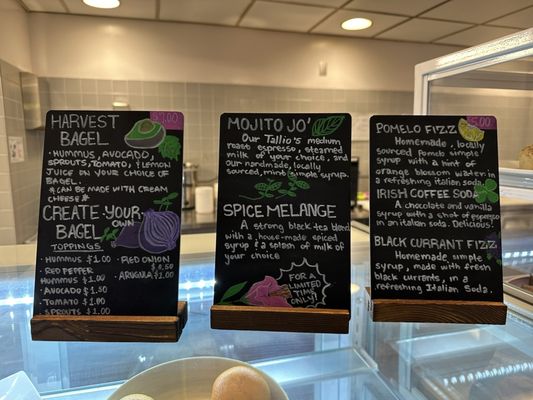 HARVEST BAGEL
$7.00
- HUMMUS, AVOCADO,
SPROUTS, TOMATO, & LEMON
JUICE ON YOUR CHOICE OF
BAGEL.
*CAN BE MADE WITH CREAM
CHEESE*
CREATE-YOUR-
OWN BAGEL
TOPPINGS
- HUMMUS $1.00
- RED PEPPER
$1.00
- HUMMUS $1.00
- AVOCADO $1.50
- TOMATO $1.00
- SPROUTS $1.00
- RED ONION
$0.50
- ARUGULA $1.00
MOJITO JO'
Our Tallio's medium
roast espresso, steamed
milk of your choice, and
our handmade, locally
sourced, mint simple syrup.
SPICE MELANGE
A strong black tea blend
with a house-made spiced
syrup & a splash of milk
of your choice
FOR A
LIMITED
TIME ONLY!
POMELO FIZZ
5.00
Homemade, locally
sourced, Pomelo simple
syrup with a hint of
orange blossom water in
a refreshing italian soda
IRISH COFFEE SODA
A chocolate and vanilla
syrup with a shot of espresso
in an italian soda. Delicious!
BLACK CURRANT FIZZ
Homemade, simple
syrup, made with fresh
black currants, in a
refreshing Italian Soda.